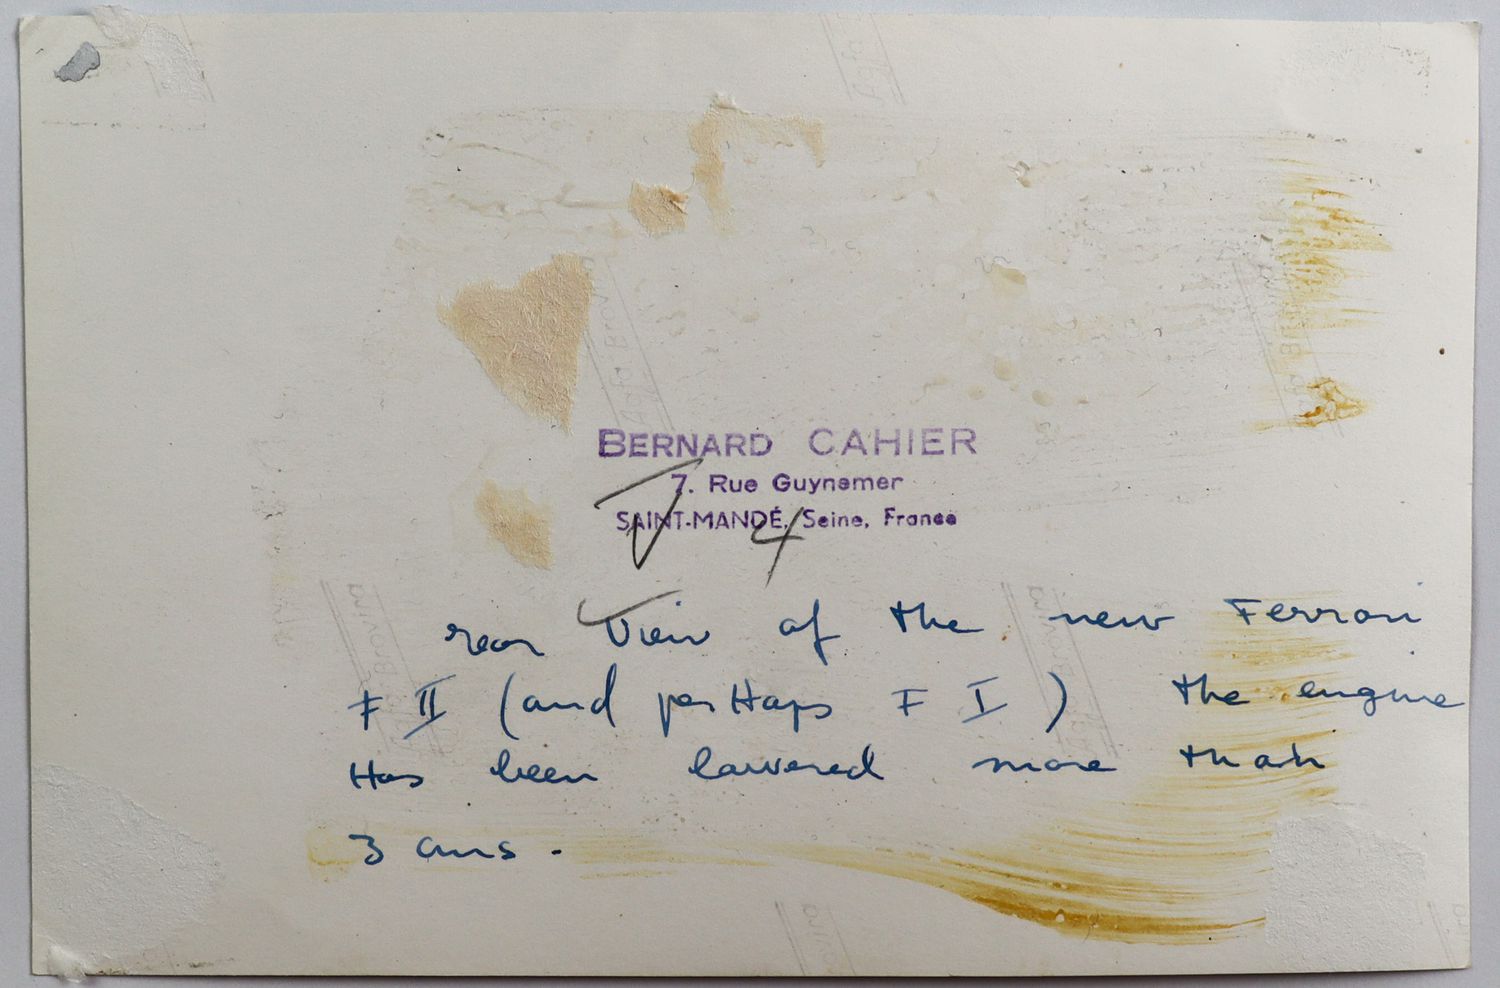 BERNARD CAHIER
7. Rue Guynemer
SAINT-MANDÉ, Seine, France
4
rear view of the new Ferrari
F II (and perHaps F I) the engine
Has been lowered more than
3 cms.